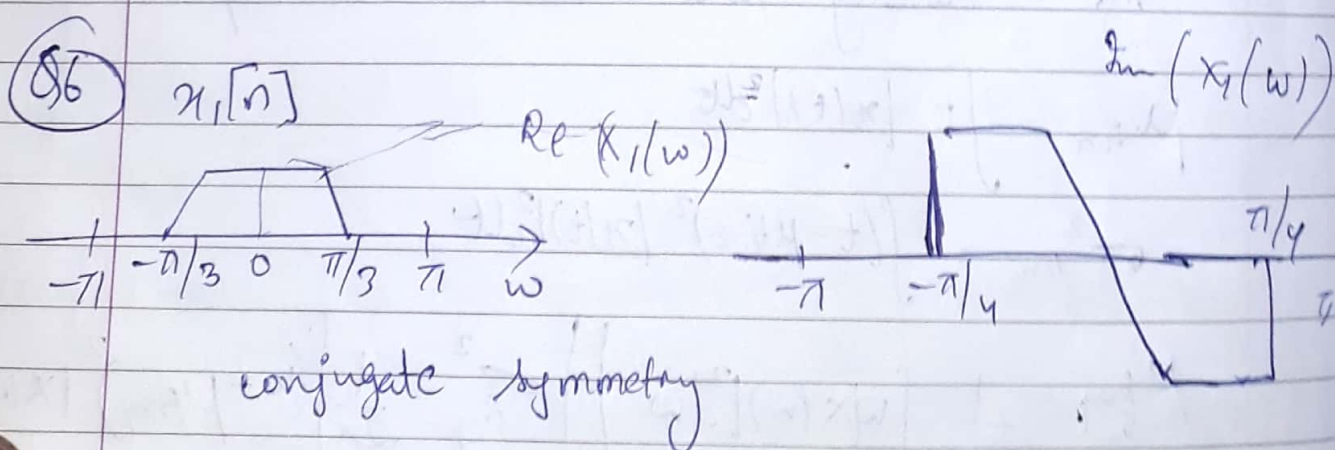 Q6
x₁[n]
Re(X₁(ω))
Im(X₁(ω))
-π -π/3 0 π/3 π ω
-π -π/4 π/4
conjugate symmetry